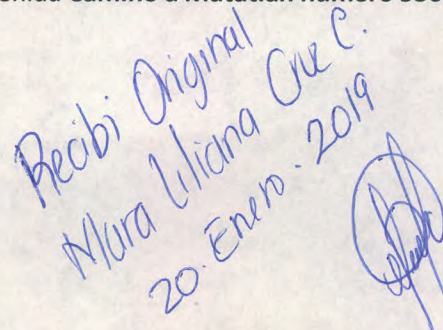 Camino a
Recibi Original
Mara Liliana Cruz C.
20. Enero. 2019